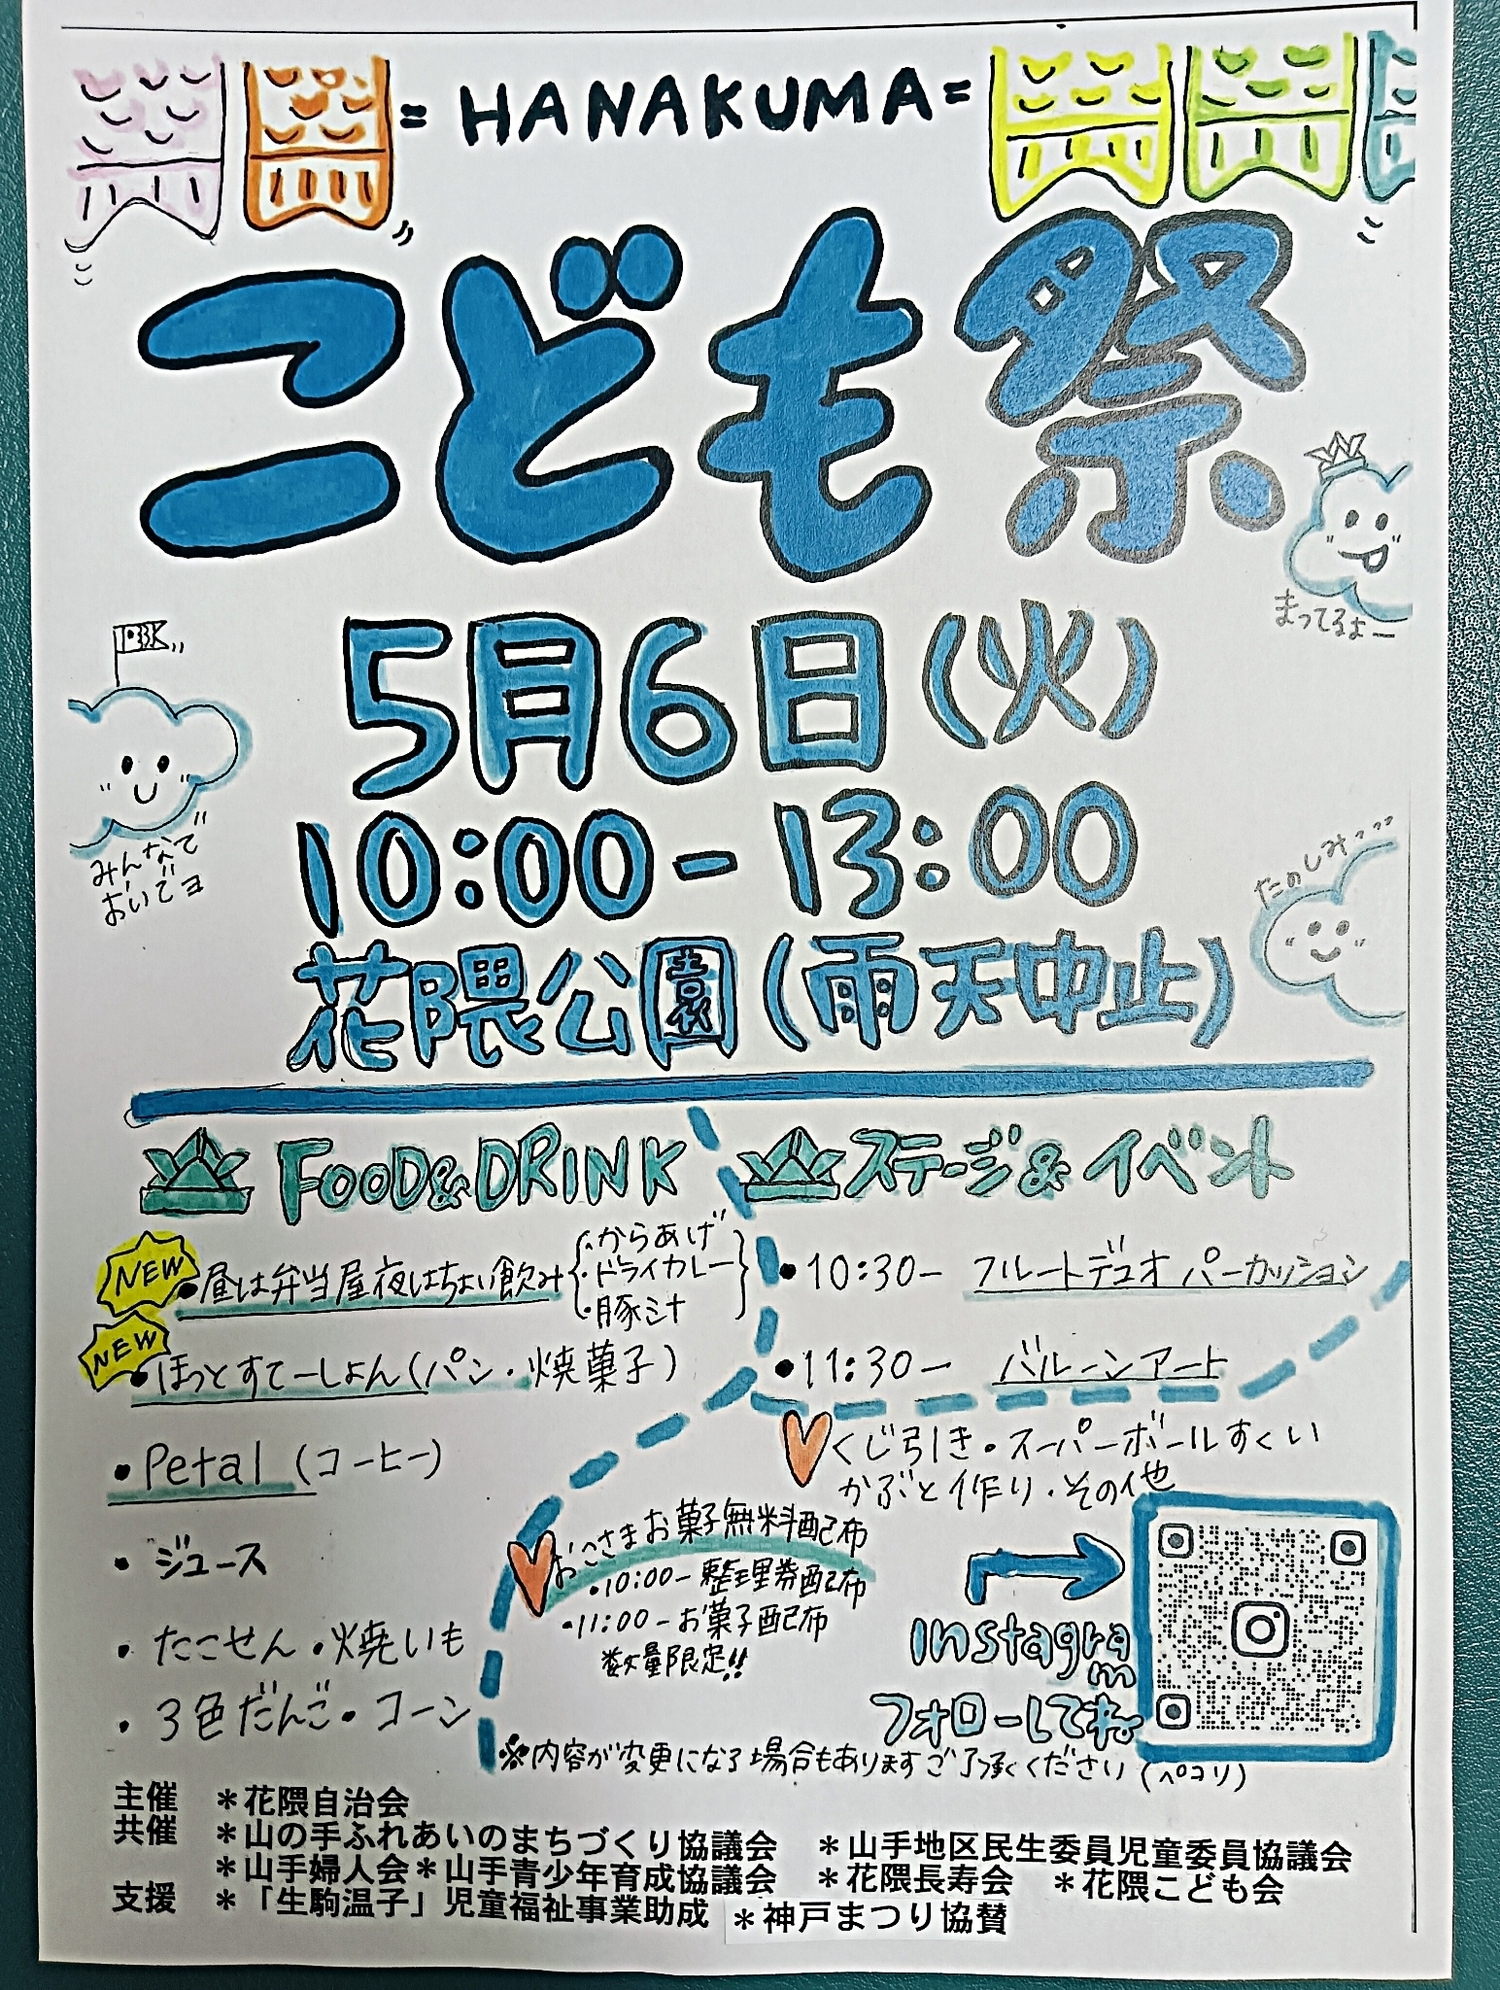 = HANAKUMA =
こども祭
まってるよー
5月6日(火)
みんなで
おいでヨ
10:00-13:00
たのしみ...
花隈公園(雨天中止)
FOOD&DRINK
NEW・昼は弁当屋夜はちょい飲み{・からあげ
・ドライカレー
・豚ミナ}
NEW・ほっとすてーしょん(パン・焼菓子)
・Petal(コーヒー)
・ジュース
・たこせん・焼いも
・3色だんご・コーン
ステージ&イベント
・10:30- フルートデュオ パーカッション
・11:30- バルーンアート
くじ引き・スーパーボールすくい
かぶと作り・その他
おこさまお菓子無料配布
・10:00-整理券配布
・11:00-お菓子配布
数量限定!!
Instagram
フォローしてね。
※内容が変更になる場合もありますご了承ください(ペコリ)
主催 *花隈自治会
共催 *山の手ふれあいのまちづくり協議会 *山手地区民生委員児童委員協議会
*山手婦人会*山手青少年育成協議会 *花隈長寿会 *花隈こども会
支援 *「生駒温子」児童福祉事業助成 *神戸まつり協賛